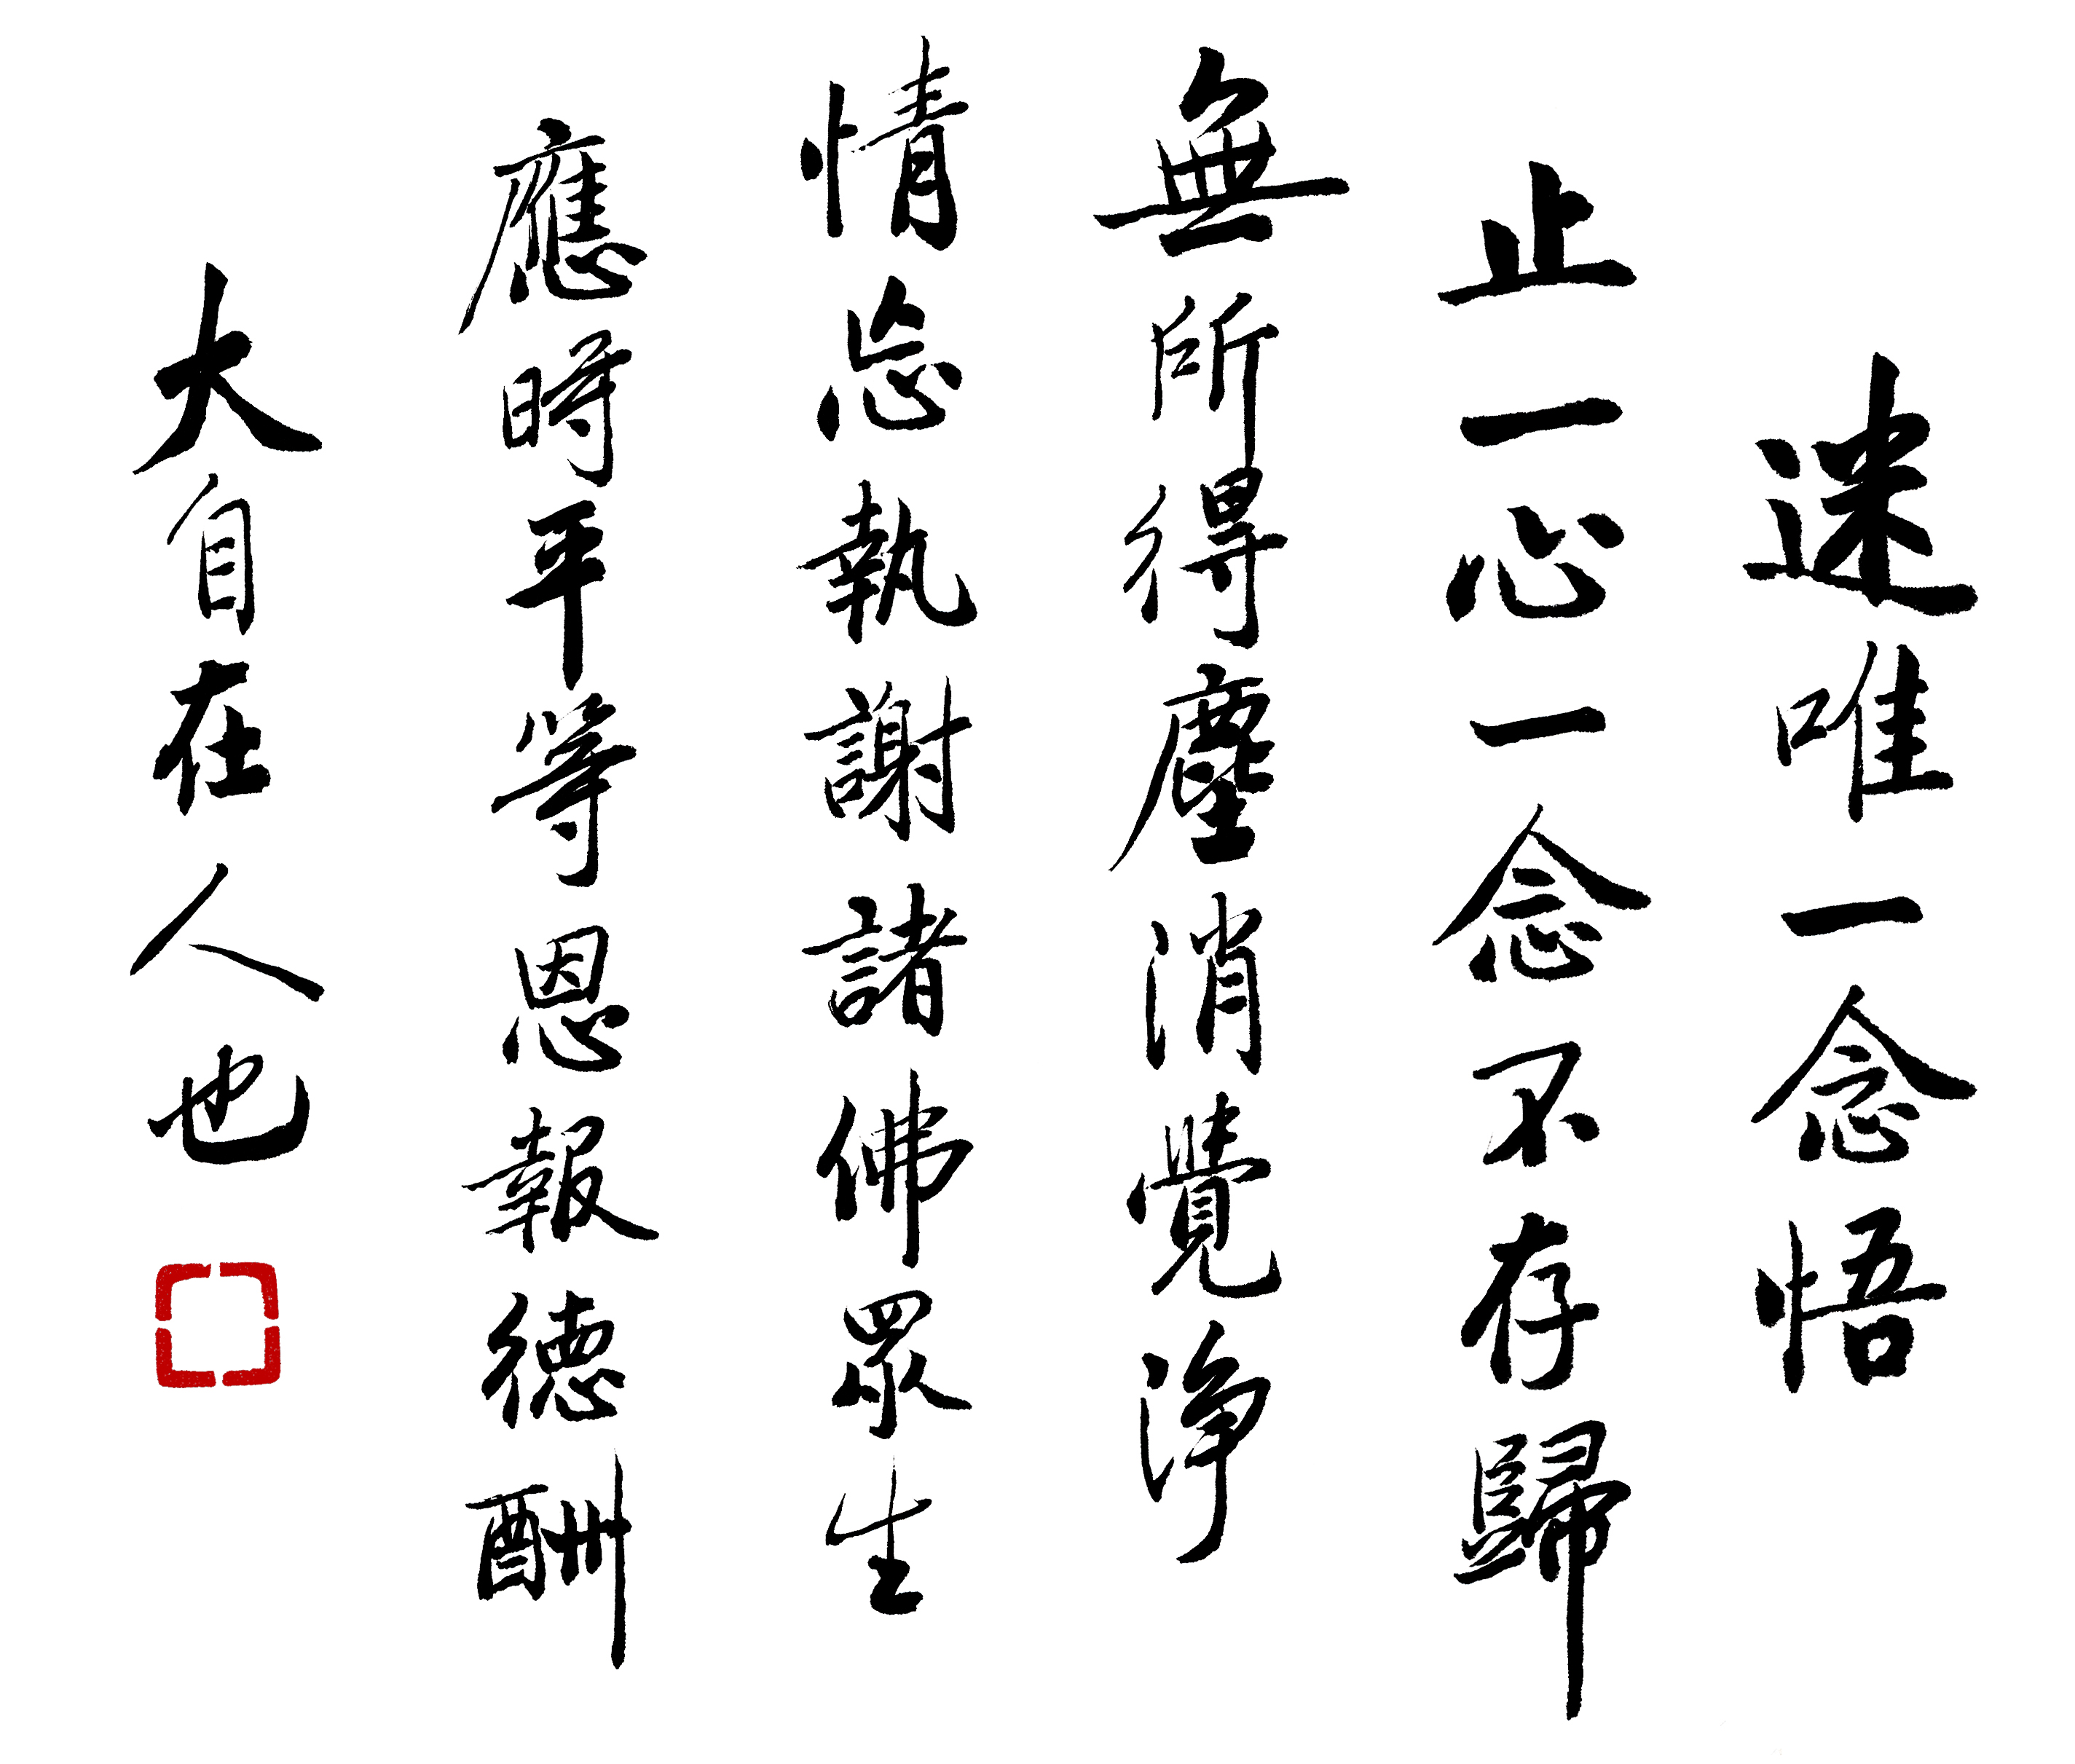 迷唯一念悟
止一心一念不存歸
無所得塵消覺淨
情忘執謝諸佛眾生
應時平等恩報德酬
大自在人也